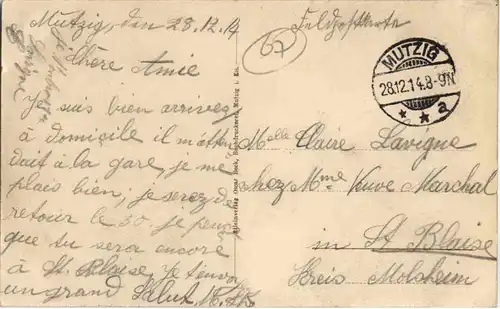 Mutzig, den 28.12.14
Chère Amie
Je suis bien arrivez
à domicile il m'atten
dait à la gare, je me
plais bien, je serez d
retour le 30. je pens
que tu sera encore
à St. Blaise, je t'envoi
un grand Salut
Feldpostkarte
67
MUTZIG
28.12.14.8-9N
* * a
Melle Claire Lavigne
chez Mme Veuve Marchal
in St Blaise
Kreis Molsheim